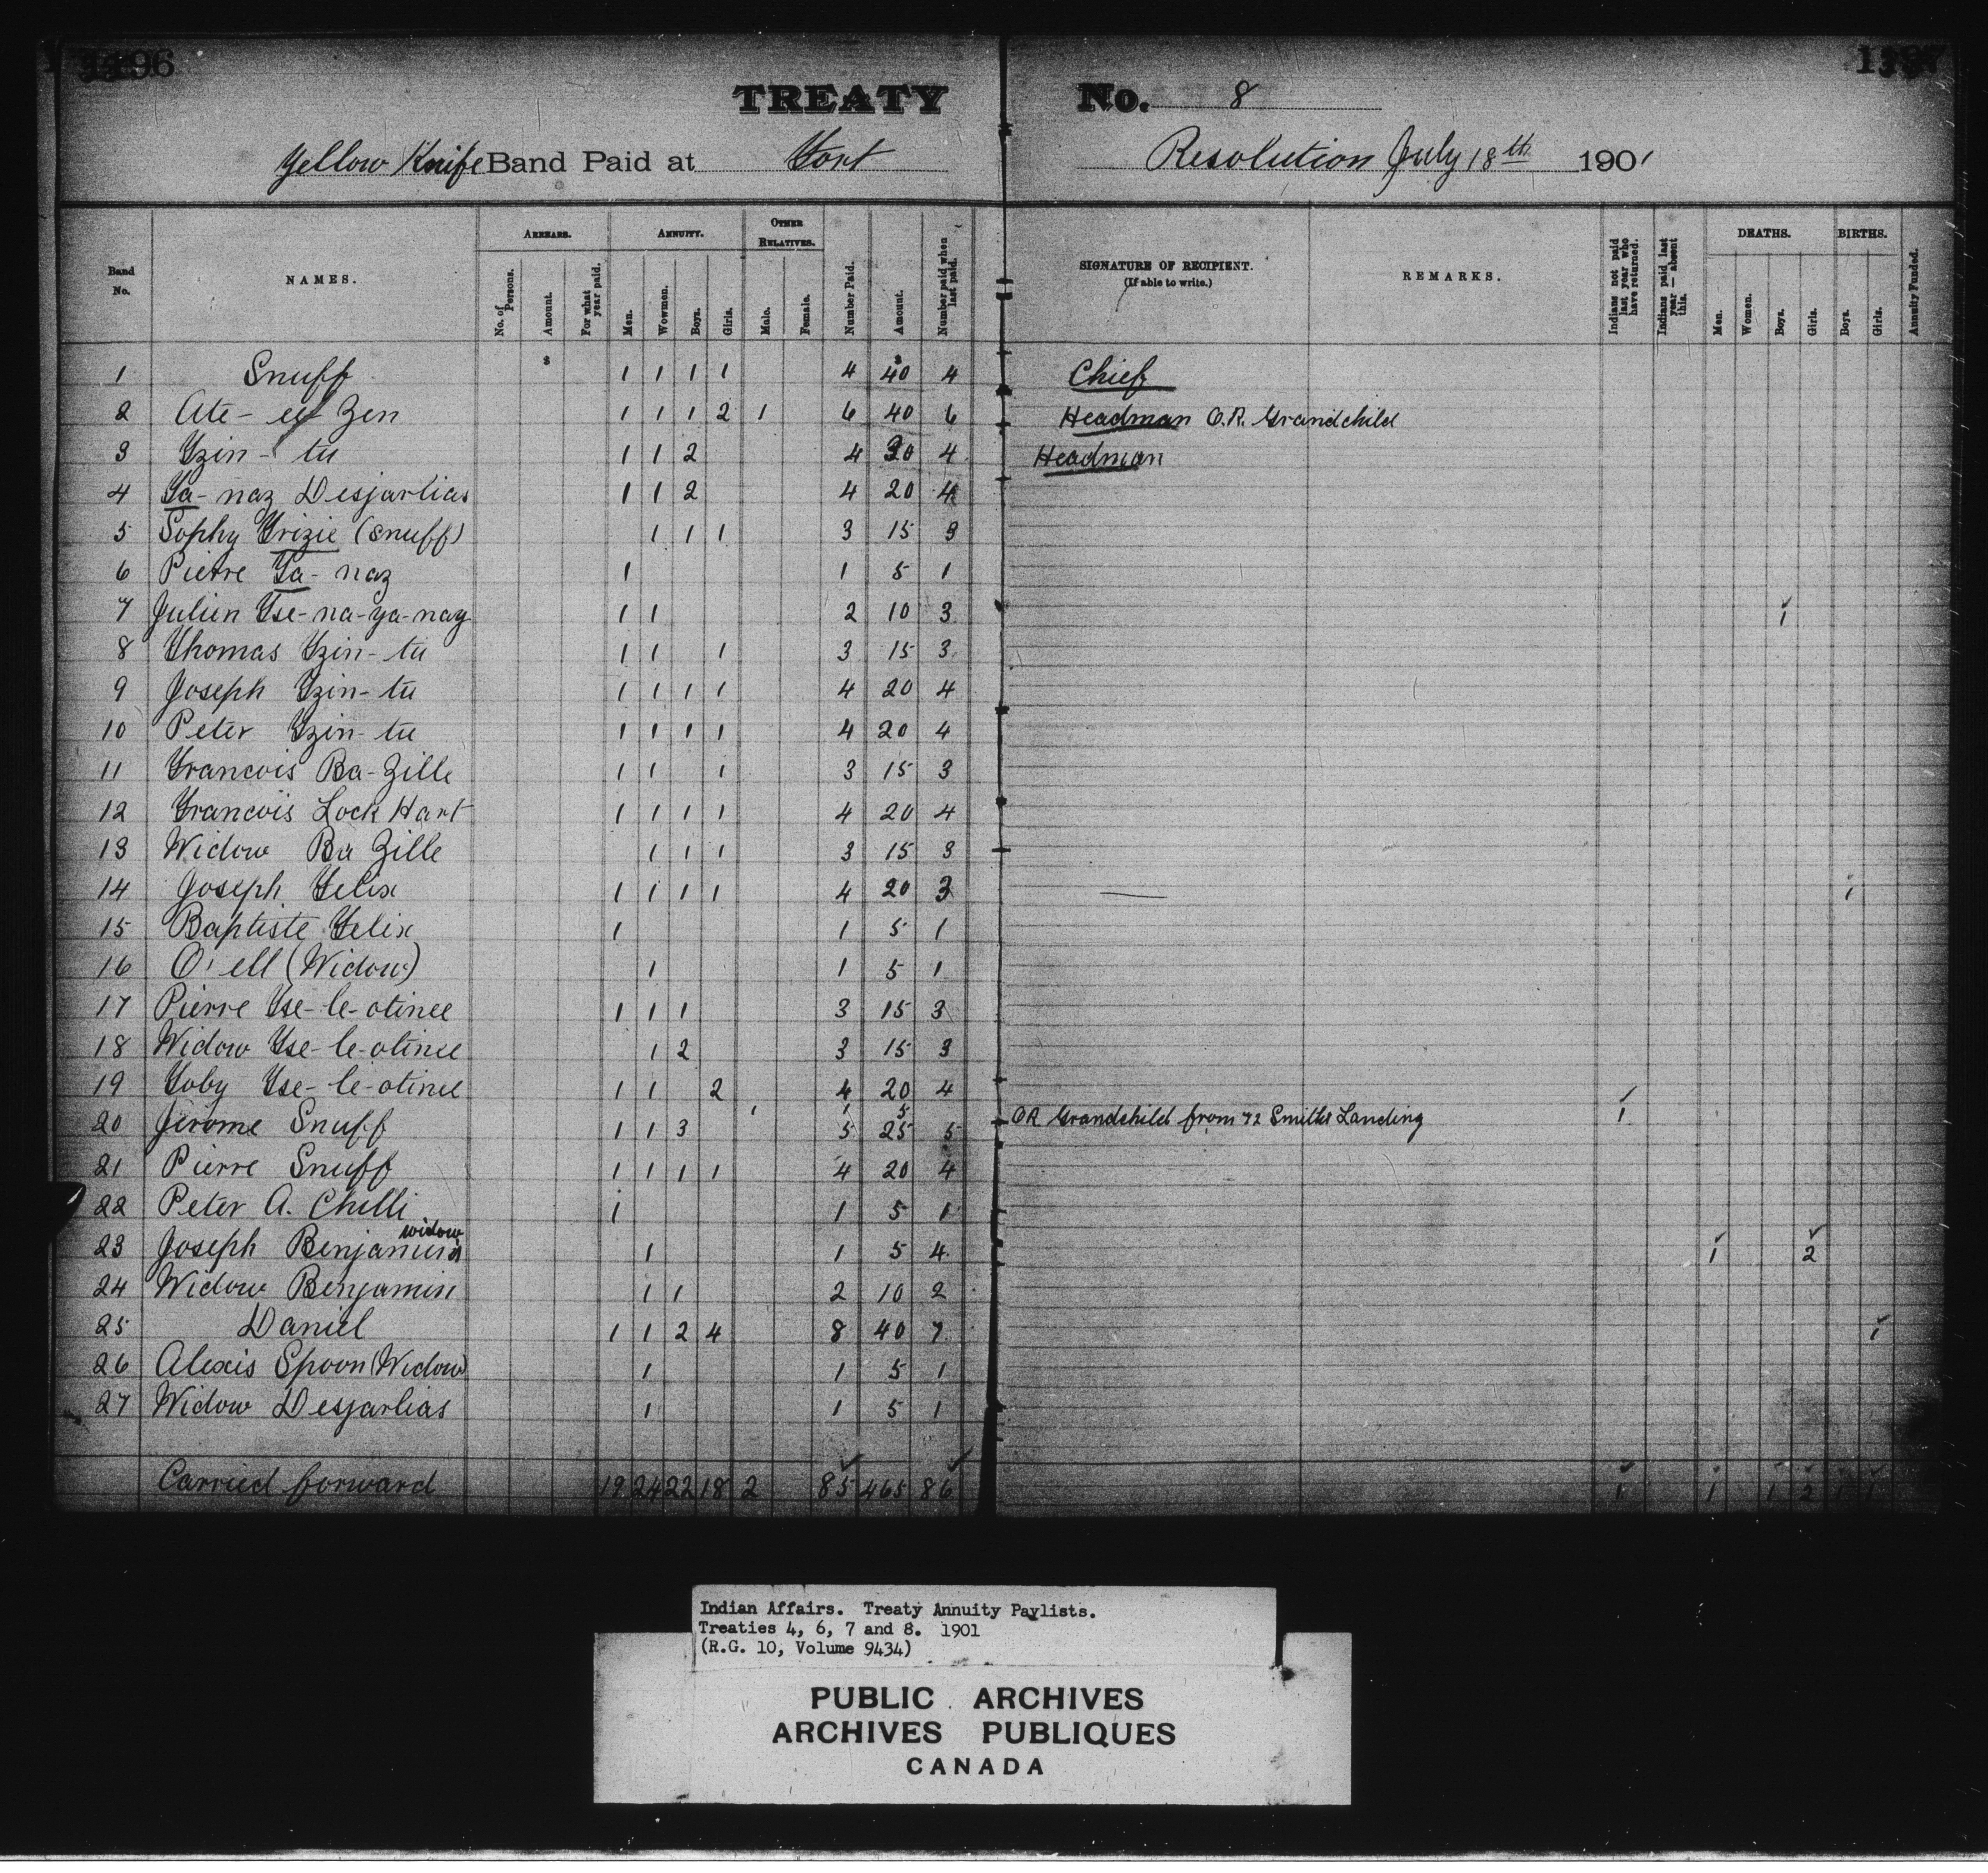 1196
1197
TREATY No. 8
Yellow Knife Band Paid at Fort Resolution July 18th 1901
Band No. NAMES. ARREARS. No. of Persons. Amount. For what year paid. ANNUITY. Men. Wowmen. Boys. Girls. OTHER RELATIVES. Male. Female. Number Paid. Amount. Number paid when last paid. SIGNATURE OF RECIPIENT. (If able to write.) REMARKS. Indians not paid last year who have returned. Indians paid last year — absent this. DEATHS. Men. Women. Boys. Girls. BIRTHS. Boys. Girls. Annuity Funded.
$ $
1 Snuff 1 1 1 1 4 40 4 Chief
2 Ate- Zen 1 1 1 2 1 6 40 6 Headman O.R. Grandchild
3 Tzin- tu 1 1 2 4 30 4 Headman
4 Ta- naz Desjarlias 1 1 2 4 20 4
5 Sophy Trizie (Snuff) 1 1 1 3 15 3
6 Pierre Ta- naz 1 1 5 1
7 Julien Tse-na-ya-naz 1 1 2 10 3 1
8 Thomas Tzin- tu 1 1 1 3 15 3
9 Joseph Tzin- tu 1 1 1 1 4 20 4
10 Peter Tzin- tu 1 1 1 1 4 20 4
11 Francois Ba-Zille 1 1 1 3 15 3
12 Francois Lock Hart 1 1 1 1 4 20 4
13 Widow Ba Zille 1 1 1 3 15 3
14 Joseph Felix 1 1 1 1 4 20 3 1
15 Baptiste Felix 1 1 5 1
16 O'ell (Widow) 1 1 5 1
17 Pierre Tse-le-otinee 1 1 1 3 15 3
18 Widow Tse-le-otinee 1 2 3 15 3
19 Toby Tse-le-otinee 1 1 2 4 20 4
1 1 5 OR Grandchild from 72 Smiths Landing 1
20 Jerome Snuff 1 1 3 5 25 5
21 Pierre Snuff 1 1 1 1 4 20 4
22 Peter A. Chilli 1 1 5 1
23 Joseph Benjamin's widow 1 1 5 4 1 2
24 Widow Benjamin 1 1 2 10 2
25 Daniel 1 1 2 4 8 40 7 1
26 Alexis Spoon (Widow) 1 1 5 1
27 Widow Desjarlias 1 1 5 1
Carried forward 19 24 22 18 2 85 465 86 1 1 1 2 1 1
Indian Affairs. Treaty Annuity Paylists.
Treaties 4, 6, 7 and 8. 1901
(R.G. 10, Volume 9434)
PUBLIC ARCHIVES
ARCHIVES PUBLIQUES
CANADA